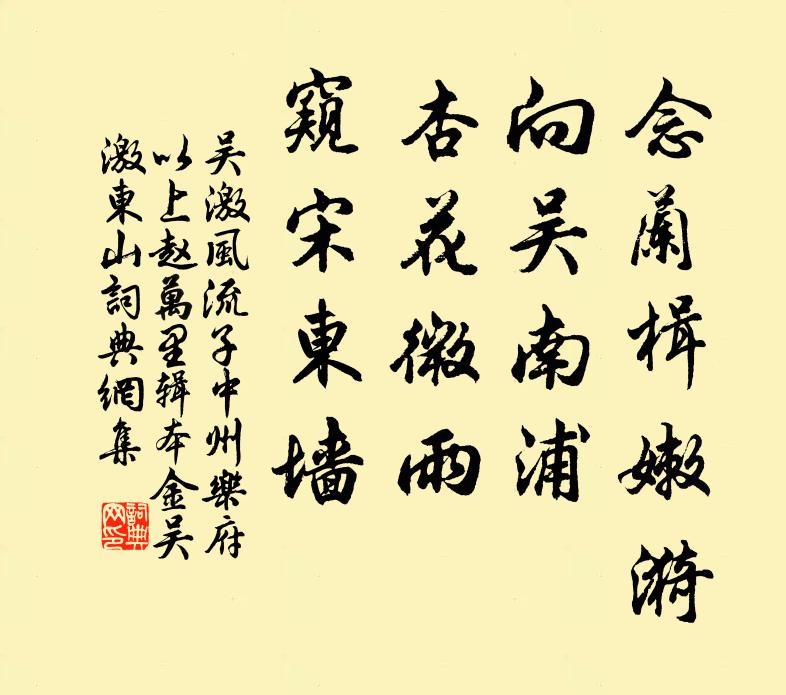 念蘭楫嫩漪
向吴南浦
杏花微雨
窺宋東墙
吴激風流子中州樂府
以上赵萬里辑本金吴
激東山詞典網集
詞典网印